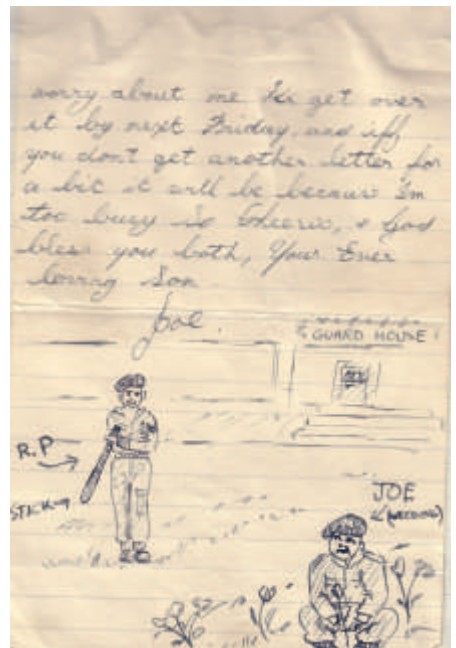 worry about me I'll get over
it by next Friday, and iff
you dont get another letter for
a bit it will be because Im
too busy so Cheerio, & God
bless you both, Your Ever
loving Son
Joe.
GUARD HOUSE
R.P
STICK
JOE
(WEEDING)